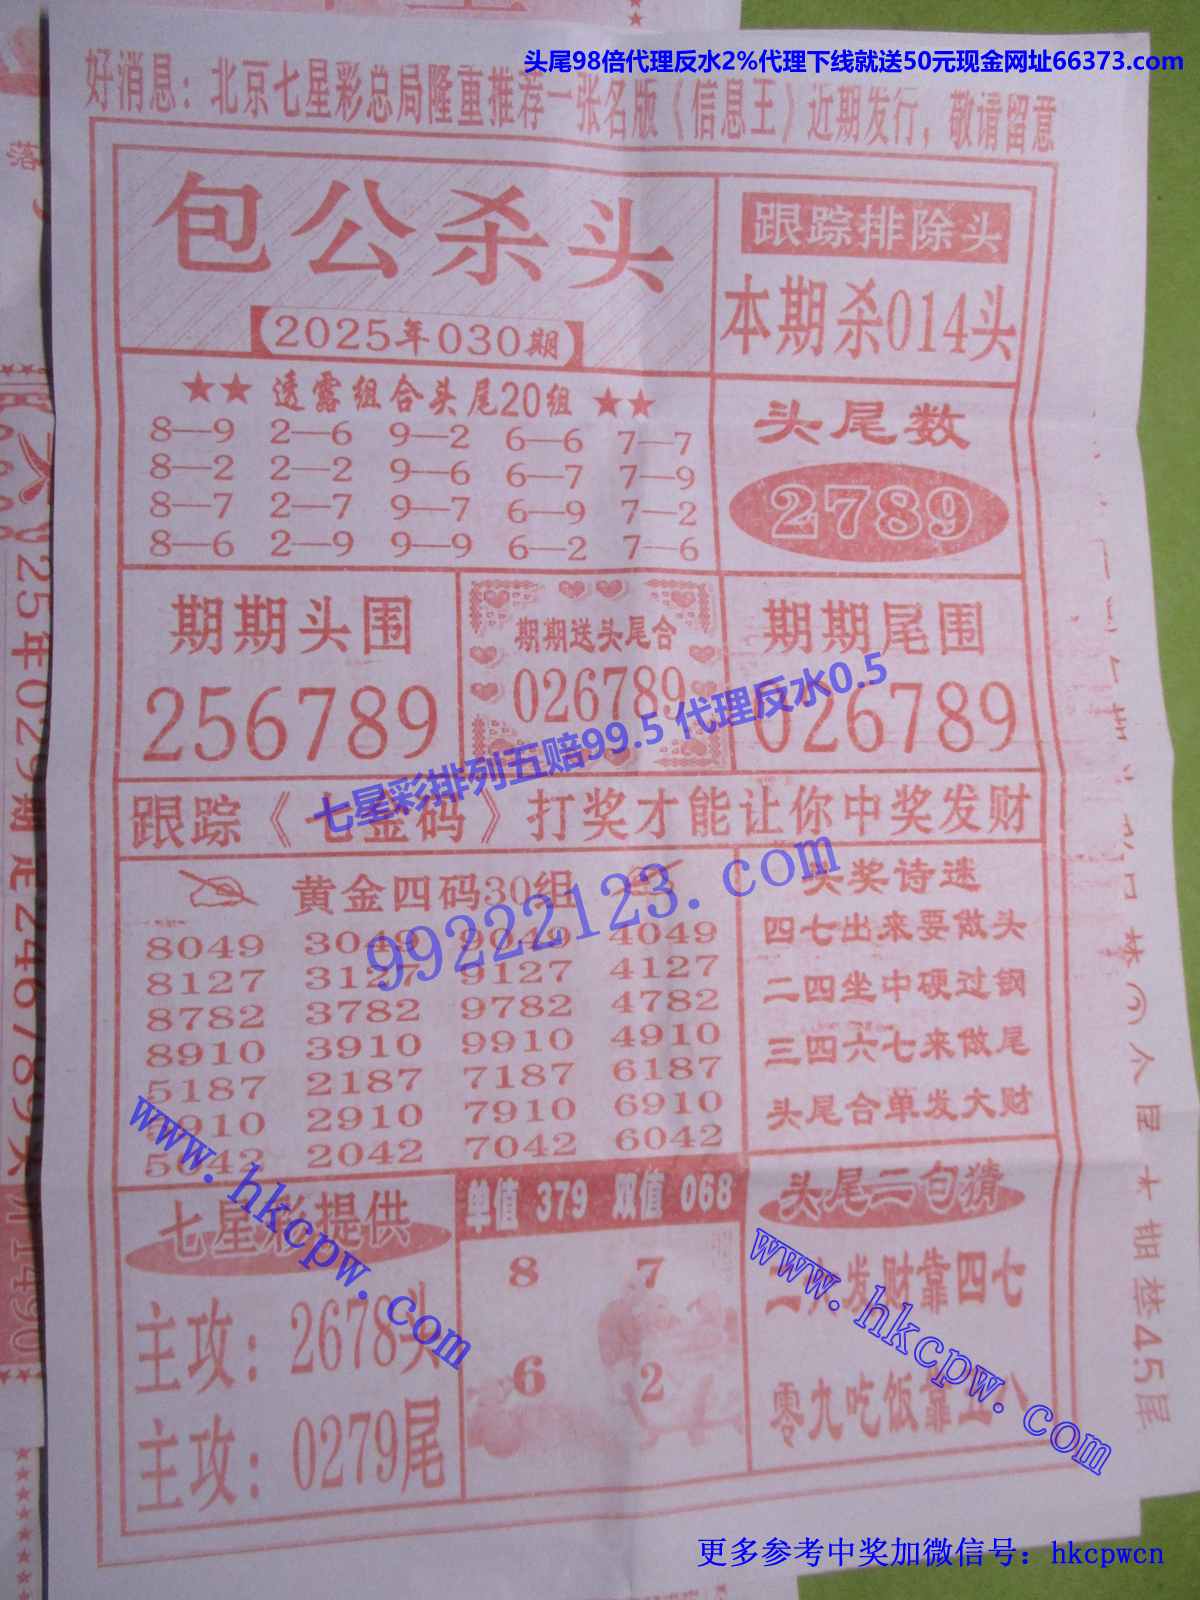 头尾98倍代理反水2%代理下线就送50元现金网址66373.com
好消息：北京七星彩总局隆重推荐一张名版《信息王》近期发行，敬请留意
包公杀头
【2025年030期】
跟踪排除头
本期杀014头
★★ 透露组合头尾20组 ★★
8—9 2—6 9—2 6—6 7—7
8—2 2—2 9—6 6—7 7—9
8—7 2—7 9—7 6—9 7—2
8—6 2—9 9—9 6—2 7—6
头尾数
2789
期期头围
256789
期期送头尾合
026789
期期尾围
026789
七星彩排列五赔99.5 代理反水0.5
跟踪《七金码》打奖才能让你中奖发财
黄金四码30组
8049 3049 9049 4049
8127 3127 9127 4127
8782 3782 9782 4782
8910 3910 9910 4910
5187 2187 7187 6187
5910 2910 7910 6910
5042 2042 7042 6042
99222123.com
奖诗迷
四七出来要做头
二四坐中硬过钢
三四六七来做尾
头尾合单发大财
七星彩提供
主攻：2678头
主攻：0279尾
单值 379 双值 068
8 7
6 2
头尾二句猜
发财靠四七
零九吃饭靠八
www.hkcpw.com
www.hkcpw.com
25年029期定246789头
1490
45尾
更多参考中奖加微信号：hkcpwcn